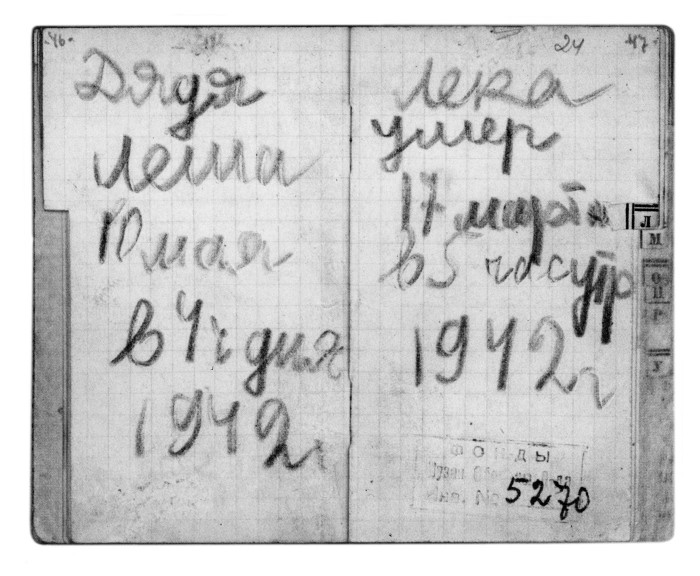 46
Дядя
Леша
10 мая
в 4 ч дня
1942 г
24 47
Лека
умер
17 марта
в 5 часутр
1942 г
Л
М
О
П
Р
У
ФОНДЫ
Инв. № 5270